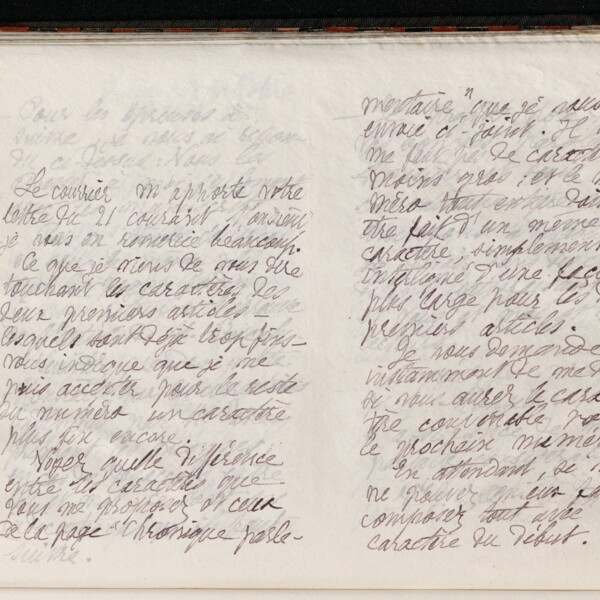 Pour les épreuves à
suivre, je vous ai répon-
du ci-dessus. Nous
Le courrier m'apporte votre
lettre du 21 courant Monsieur
je vous en remercie beaucoup.
Ce que je viens de vous dire
touchant les caractères des
deux premiers articles –
lesquels sont déjà trop fins –
vous indique que je ne
puis accepter pour le reste
du numéro, un caractère
plus fin encore.
Voyez quelle différence
entre les caractères que
vous me proposez et ceux
de la page "Chronique parle-
mentaire" que je vous
envoie ci-joint. Il
me faut pas de caract
moins gros ; et le n
méro tout entier doit
être fait d'un même
caractère, simplement
interligné d'une façon
plus large pour les
premiers articles.
Je vous demande
instamment de me d
si vous aurez le cara
tère convenable
le prochain numé
En attendant, si
ne pouvez mieux fa
composez tout avec
caractère du début.